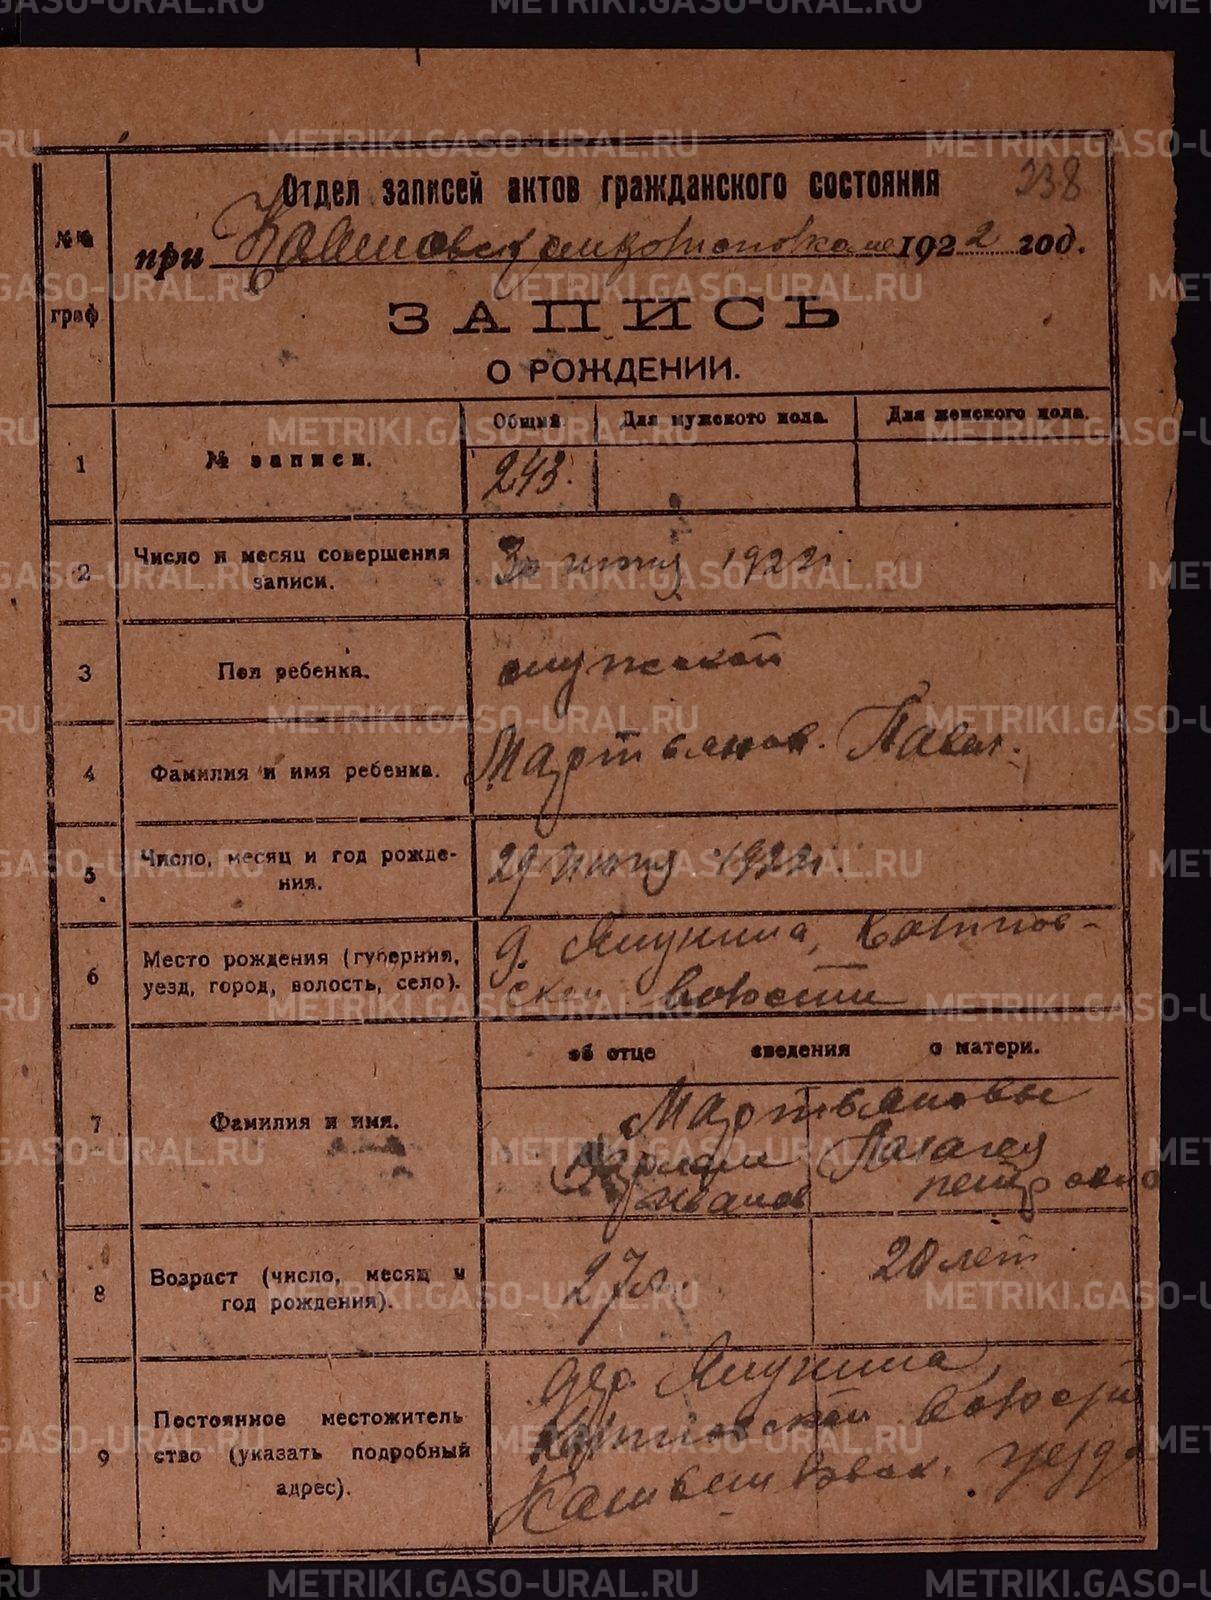 METRIKI.GASO-URAL.RU
Отдел записей актов гражданского состояния
238
№№ граф
при 1922 год.
ЗАПИСЬ
О РОЖДЕНИИ.
Общий
Для мужского пола.
Для женского пола.
1
№ записи.
243.
2
Число и месяц совершения
записи.
30 июня 1922г.
3
Пол ребенка.
мужской
4
Фамилия и имя ребенка.
Мартьянов. Павел.
5
Число, месяц и год рожде-
ния.
29 июня 1922г.
6
Место рождения (губерния,
уезд, город, волость, село).
д. Ямунина,
ской волости
об отце сведения о матери.
7
Фамилия и имя.
Мартьяновы
Пелагея
Иванов
Петровна
8
Возраст (число, месяц и
год рождения).
27 л.
20 лет
9
Постоянное местожитель
ство (указать подробный
адрес).
дер. Ямунина,
волости
уезда